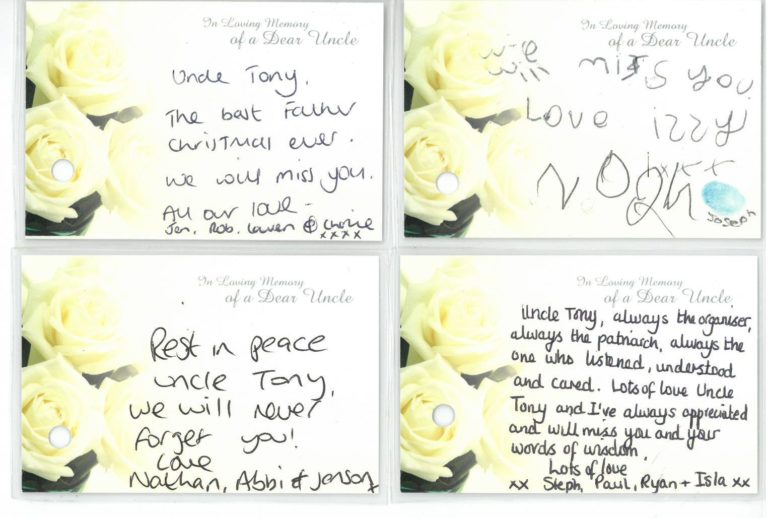 In Loving Memory
of a Dear Uncle
Uncle Tony,
The best Father
Christmas ever.
We will miss you.
All our love -
Jen, Rob, Lauren &
xxxx
In Loving Memory
of a Dear Uncle
we
will miss you
Love izzy
xxxx
NOAH
Joseph
In Loving Memory
of a Dear Uncle
Rest in peace
uncle Tony,
we will never
forget you!
Love
Nathan, Abbi & Jenson x
In Loving Memory
of a Dear Uncle
Uncle Tony, always the organiser,
always the patriarch, always the
one who listened, understood
and cared. Lots of love Uncle
Tony and I've always appreciated
and will miss you and your
words of wisdom.
Lots of love
xx Steph, Paul, Ryan + Isla xx